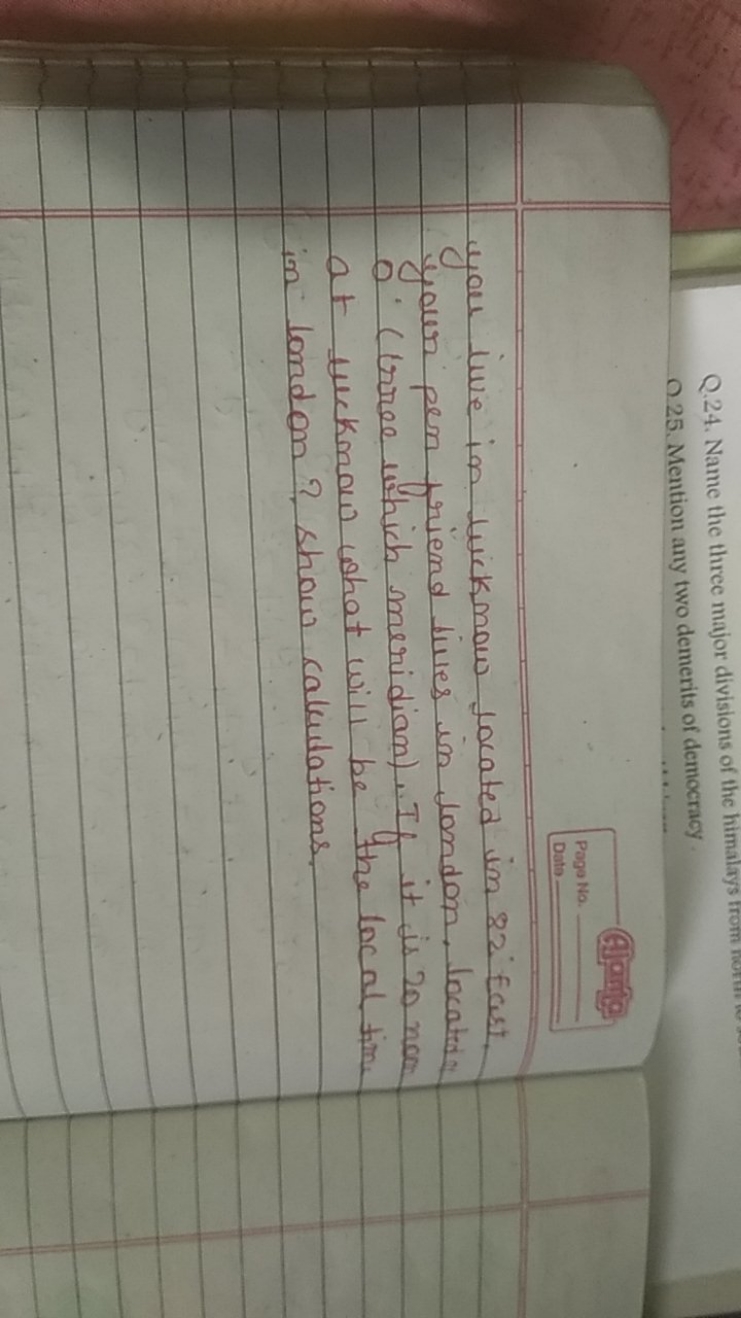 Q.24. Name the three major divisions of the himalays from
Q.25. Mention any two demerits of democracy.
Ajanta
Page No.
Date
you live in lucknow located in 82° East,
your pen friend lives in london, located
0° (three which meridian), If it is 20 noon
at lucknow what will be the local time
in london? show calculations.